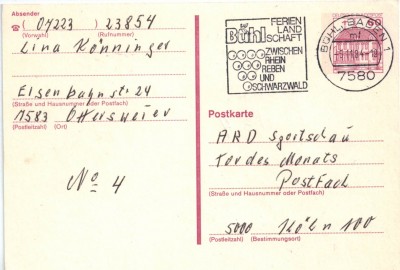 Absender
(07223) 23854
(Vorwahl) (Rufnummer)
Lina Könninger
Eisenbahnstr 24
(Straße und Hausnummer oder Postfach)
7583 Ottersweier
(Postleitzahl) (Ort)
No 4
Bühl
FERIEN
LAND
SCHAFT
ZWISCHEN
RHEIN
REBEN
UND
SCHWARZWALD
60
BÜHL, BADEN 1
ml
7580
Postkarte
ARD Sportschau
Tor des Monats
Postfach
(Straße und Hausnummer oder Postfach)
5000 Köln 100
(Postleitzahl) (Bestimmungsort)